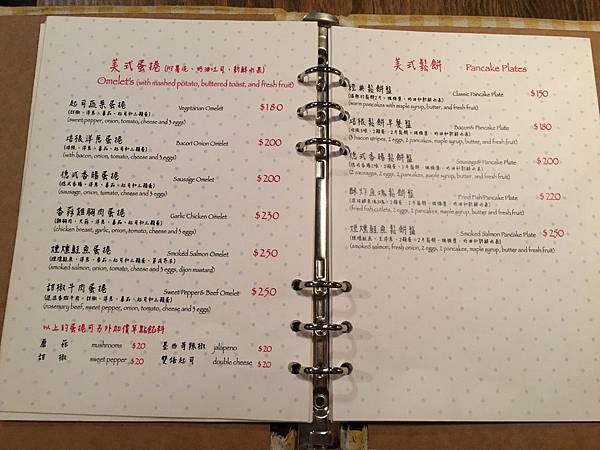 美式蛋捲 (附薯泥、奶油吐司、新鮮水果)
Omelet's (with mashed potato, buttered toast, and fresh fruit)
起司蔬菜蛋捲 Vegetarian Omelet $180
(甜椒、洋蔥、番茄、起司和三顆蛋)
(sweet pepper, onion, tomato, cheese and 3 eggs)
培根洋蔥蛋捲 Bacon Onion Omelet $200
(培根、洋蔥、番茄、起司和三顆蛋)
(with bacon, onion, tomato, cheese and 3 eggs)
德式香腸蛋捲 Sausage Omelet $200
(德式香腸、洋蔥、番茄、起司和三顆蛋)
(sausage, onion, tomato, cheese and 3 eggs)
香蒜雞胸肉蛋捲 Garlic Chicken Omelet $230
(雞胸肉、大蒜、洋蔥、番茄、起司和三顆蛋)
(chicken breast, garlic, onion, tomato, cheese and 3 eggs)
煙燻鮭魚蛋捲 Smoked Salmon Omelet $250
(煙燻鮭魚、洋蔥、番茄、起司和三顆蛋、芥末)
(smoked salmon, onion, tomato, cheese and 3 eggs, dijon mustard)
甜椒牛肉蛋捲 Sweet Pepper & Beef Omelet $250
(迷迭香牛肉、甜椒、洋蔥、番茄、起司和三顆蛋)
(rosemary beef, sweet pepper, onion, tomato, cheese and 3 eggs)
以上的蛋捲可另外加價單點餡料
蘑菇 mushrooms $20 墨西哥辣椒 jalapeno $20
甜椒 sweet pepper $20 雙倍起司 double cheese $20
美式鬆餅 Pancake Plates
經典鬆餅盤 Classic Pancake Plate $150
(warm pancakes with maple syrup, butter, and fresh fruit)
培根鬆餅早餐盤 Bacon & Pancake Plate $180
(3 bacon stripes, 2 eggs, 2 pancakes, maple syrup, butter, and fresh fruit)
德式香腸鬆餅盤 Sausage & Pancake Plate $200
(2 sausages, 2 eggs, 2 pancakes, maple syrup, butter, and fresh fruit)
酥炸魚塊鬆餅盤 Fried Fish Pancake Plate $220
(fried fish cutlets, 2 eggs, 2 pancakes, maple syrup, butter, and fresh fruit)
煙燻鮭魚鬆餅盤 Smoked Salmon Pancake Plate $250
(smoked salmon, fresh onion, 2 eggs, 2 pancakes, maple syrup, butter and fresh fruit)